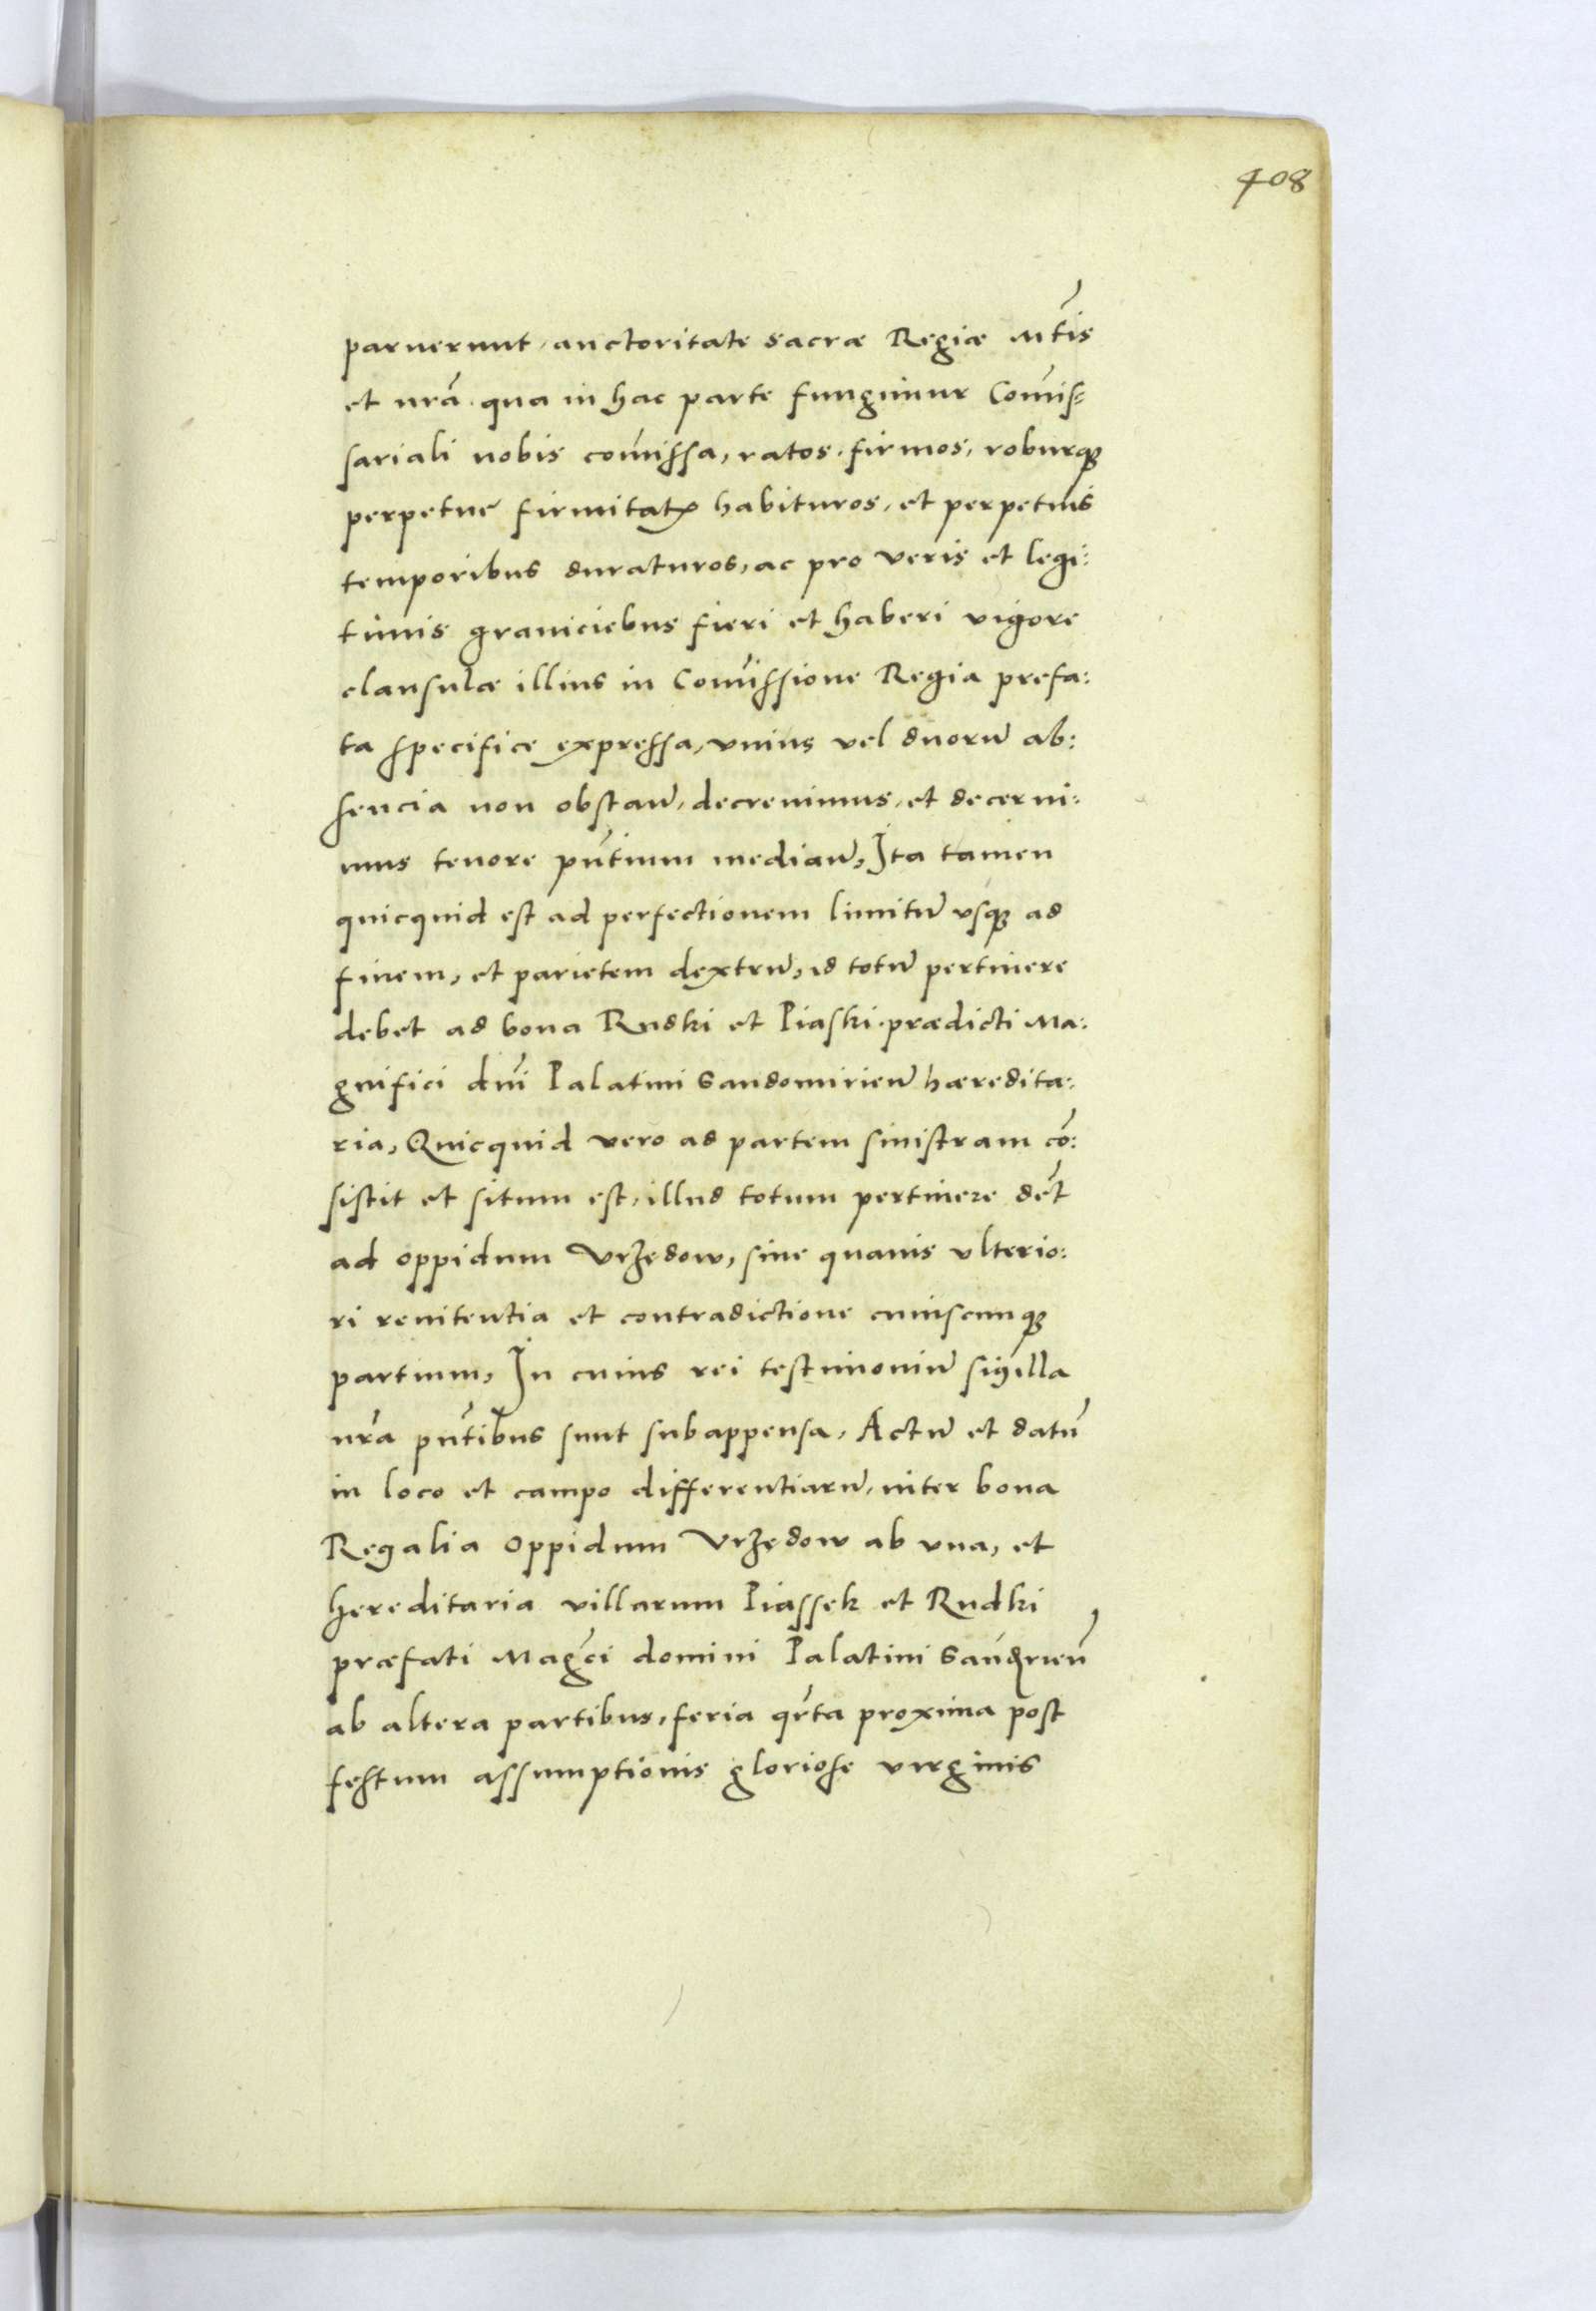 408
paruerunt, auctoritate sacræ Regiæ Mt̃is
et nrã. qua in hac parte fungimur Com̃is=
sariali nobis com̃issa, ratos. firmos, roburq;
perpetue firmitatis habituros, et perpetuis
temporibus duraturos, ac pro veris et legi:
timis graniciebus fieri et haberi vigore
clausulæ illius in Com̃issione Regia prefa:
ta specifice expressa, vnius vel duorũ ab:
sencia non obstañ, decreuimus, et decerni:
mus tenore pñtium mediañ, Ita tamen
quicquid est ad perfectionem limitũ vsq; ad
finem, et parietem dextrũ, id totũ pertinere
debet ad bona Rudki et Piaski. prædicti Ma:
gnifici dñi Palatini Sandomirieñ hæredita:
ria, Quicquid vero ad partem sinistram cõ:
sistit et situm est, illud totum pertinere det̃
ad oppidum Vrzędow, sine quauis vlterio:
ri renitentia et contradictione cuiuscunq;
partium, In cuius rei testimoniũ sigilla
nrã pñtibus sunt subappensa, Actũ et datũ
in loco et campo differentiarũ, inter bona
Regalia Oppidum Vrzędow ab vna, et
hereditaria villarum Piassek et Rudki
præfati Magc̃i domini Palatini Sandrieñ
ab altera partibus, feria qr̃ta proxima post
festum assumptionis gloriose virginis